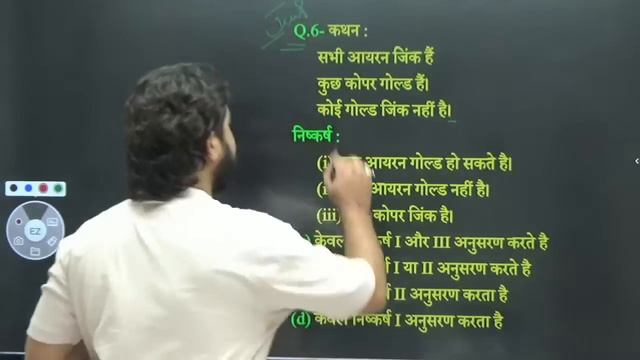 Q.6- कथन :
सभी आयरन जिंक हैं
कुछ कोपर गोल्ड हैं।
कोई गोल्ड जिंक नहीं है।
निष्कर्ष :
(i) आयरन गोल्ड हो सकते है।
आयरन गोल्ड नहीं है।
(iii) कोपर जिंक है।
केवल I और III अनुसरण करते है
I या II अनुसरण करते है
II अनुसरण करता है
(d) केवल निष्कर्ष I अनुसरण करता है
EZ